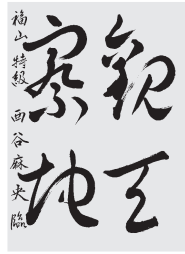 観天
察地
福山 特級 西谷麻央 臨